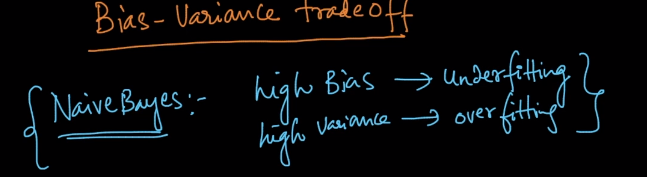 Bias-Variance tradeoff
{ Naive Bayes:- high Bias → underfitting }
high variance → overfitting